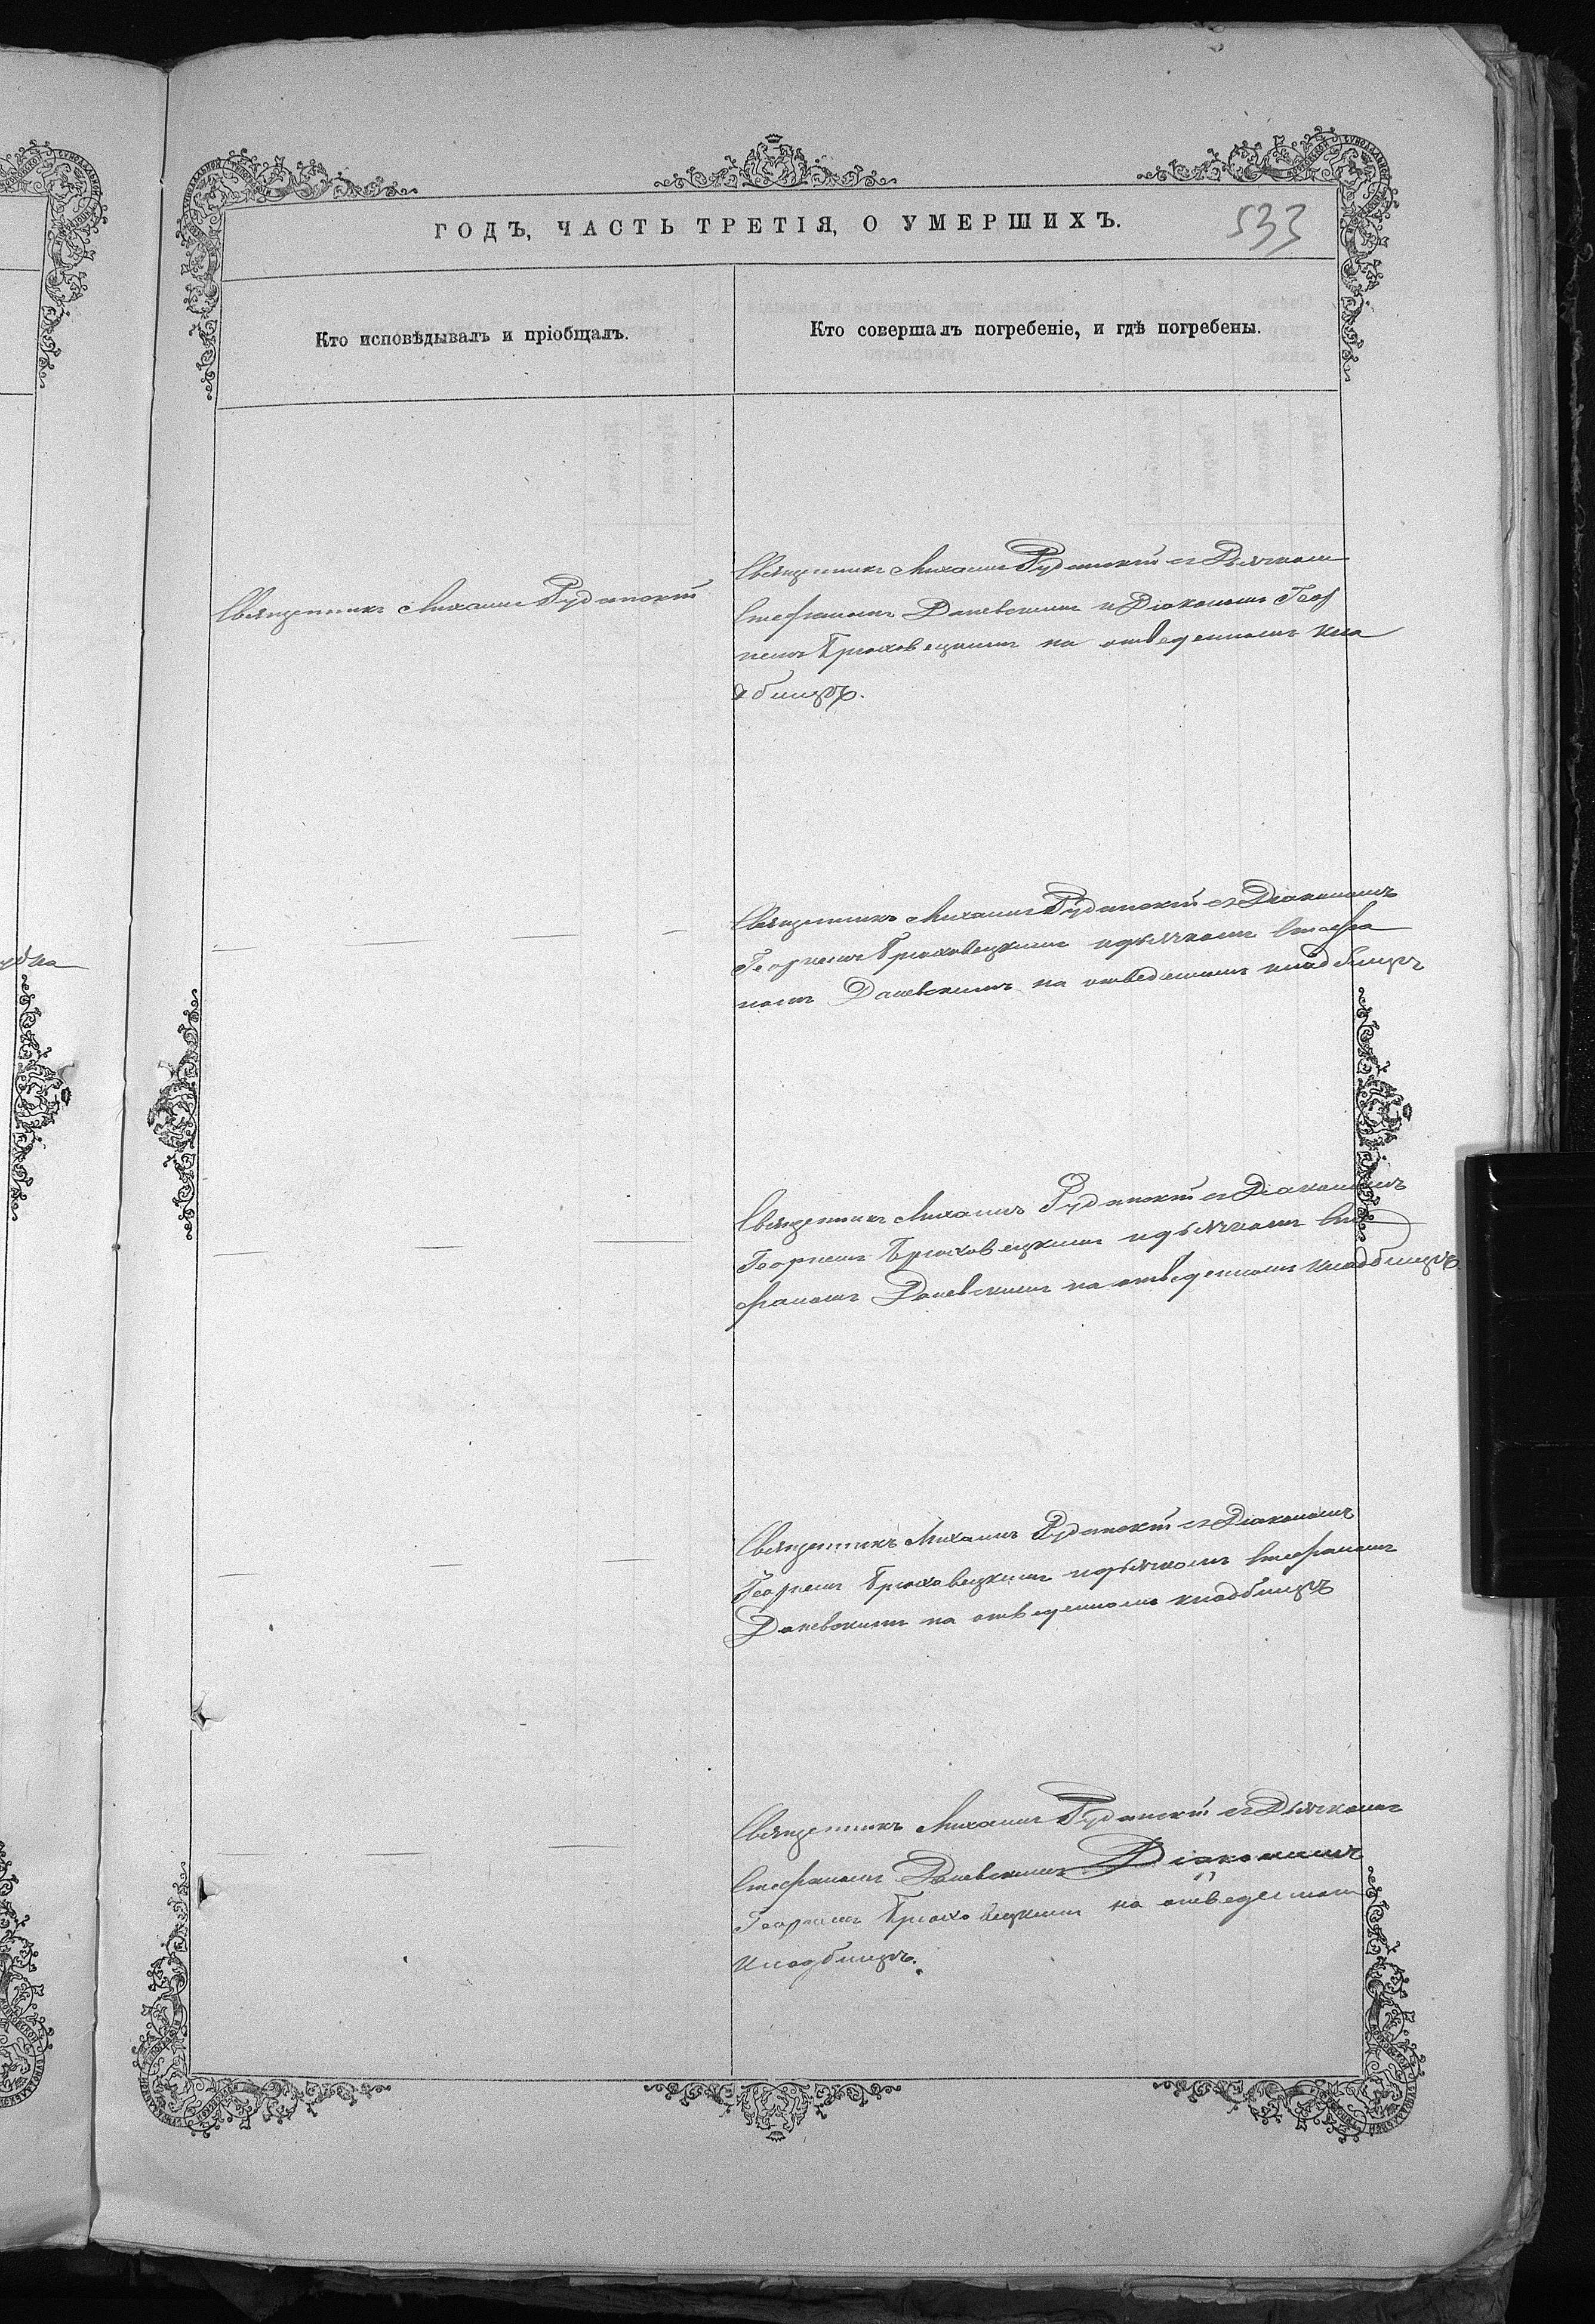 ГОДЪ, ЧАСТЬ ТРЕТІЯ, О УМЕРШИХЪ.
533
Кто исповѣдывалъ и пріобщалъ.
Кто совершалъ погребеніе, и гдѣ погребены.
Священникъ Михаилъ Руданскій
Священникъ Михаилъ Руданскій съ Дьячкомъ
Стефаномъ Далевскимъ и Діакономъ Геор
гіемъ Брюховецкимъ на отведенномъ кла
дбищѣ.
Священникъ Михаилъ Руданскій съ Діакономъ
Георгіемъ Брюховецкимъ и дьячкомъ Стефа
номъ Далевскимъ на отведенномъ кладбищѣ
Священникъ Михаилъ Руданскій съ Діакономъ
Георгіемъ Брюховецкимъ и дьячкомъ Сте
фаномъ Далевскимъ на отведенномъ кладбищѣ.
Священникъ Михаилъ Руданскій съ Діакономъ
Георгіемъ Брюховецкимъ и дьячкомъ Стефаномъ
Далевскимъ на отведенномъ кладбищѣ
Священникъ Михаилъ Руданскій съ Дьячкомъ
Стефаномъ Далевскимъ Діакономъ
Георгіемъ Брюховецкимъ на отведенномъ
кладбищѣ.